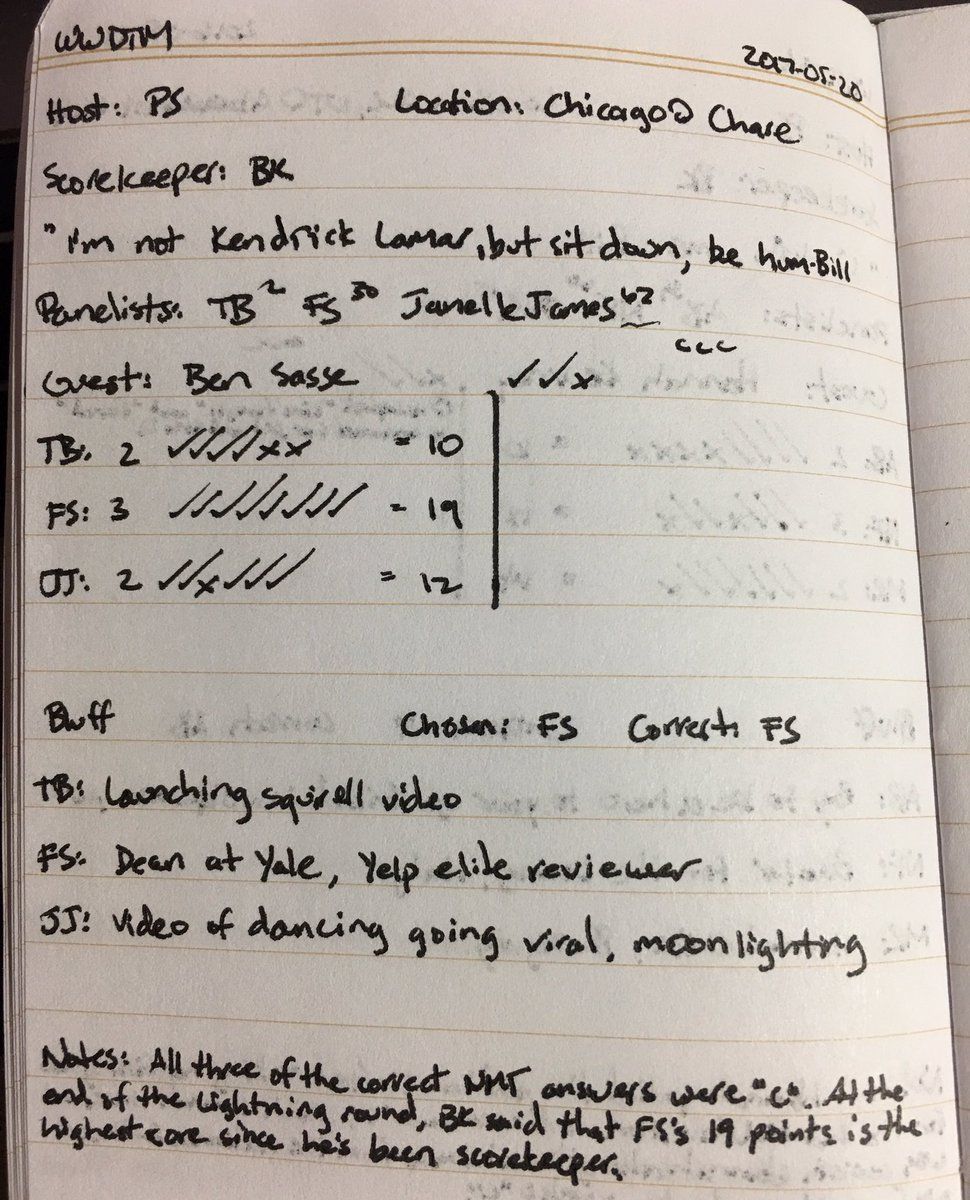 WWDTM
2017-05-20
Host: PS Location: Chicago @ Chase
Scorekeeper: BK
"I'm not Kendrick Lamar, but sit down, be hum-Bill
Panelists: TB² FS³⁰ Janelle James⁶²
CCC
Guest: Ben Sasse ✓✓x
TB: 2 ✓✓✓✓xx = 10
FS: 3 ✓✓✓✓✓✓✓✓ = 19
JJ: 2 ✓✓x✓✓✓ = 12
Bluff Chosen: FS Correct: FS
TB: Launching squirell video
FS: Dean at Yale, Yelp elite reviewer
JJ: Video of dancing going viral, moonlighting
Notes: All three of the correct NMT answers were "C". At the
end of the Lightning round, BK said that FS's 19 points is the
highest core since he's been scorekeeper.